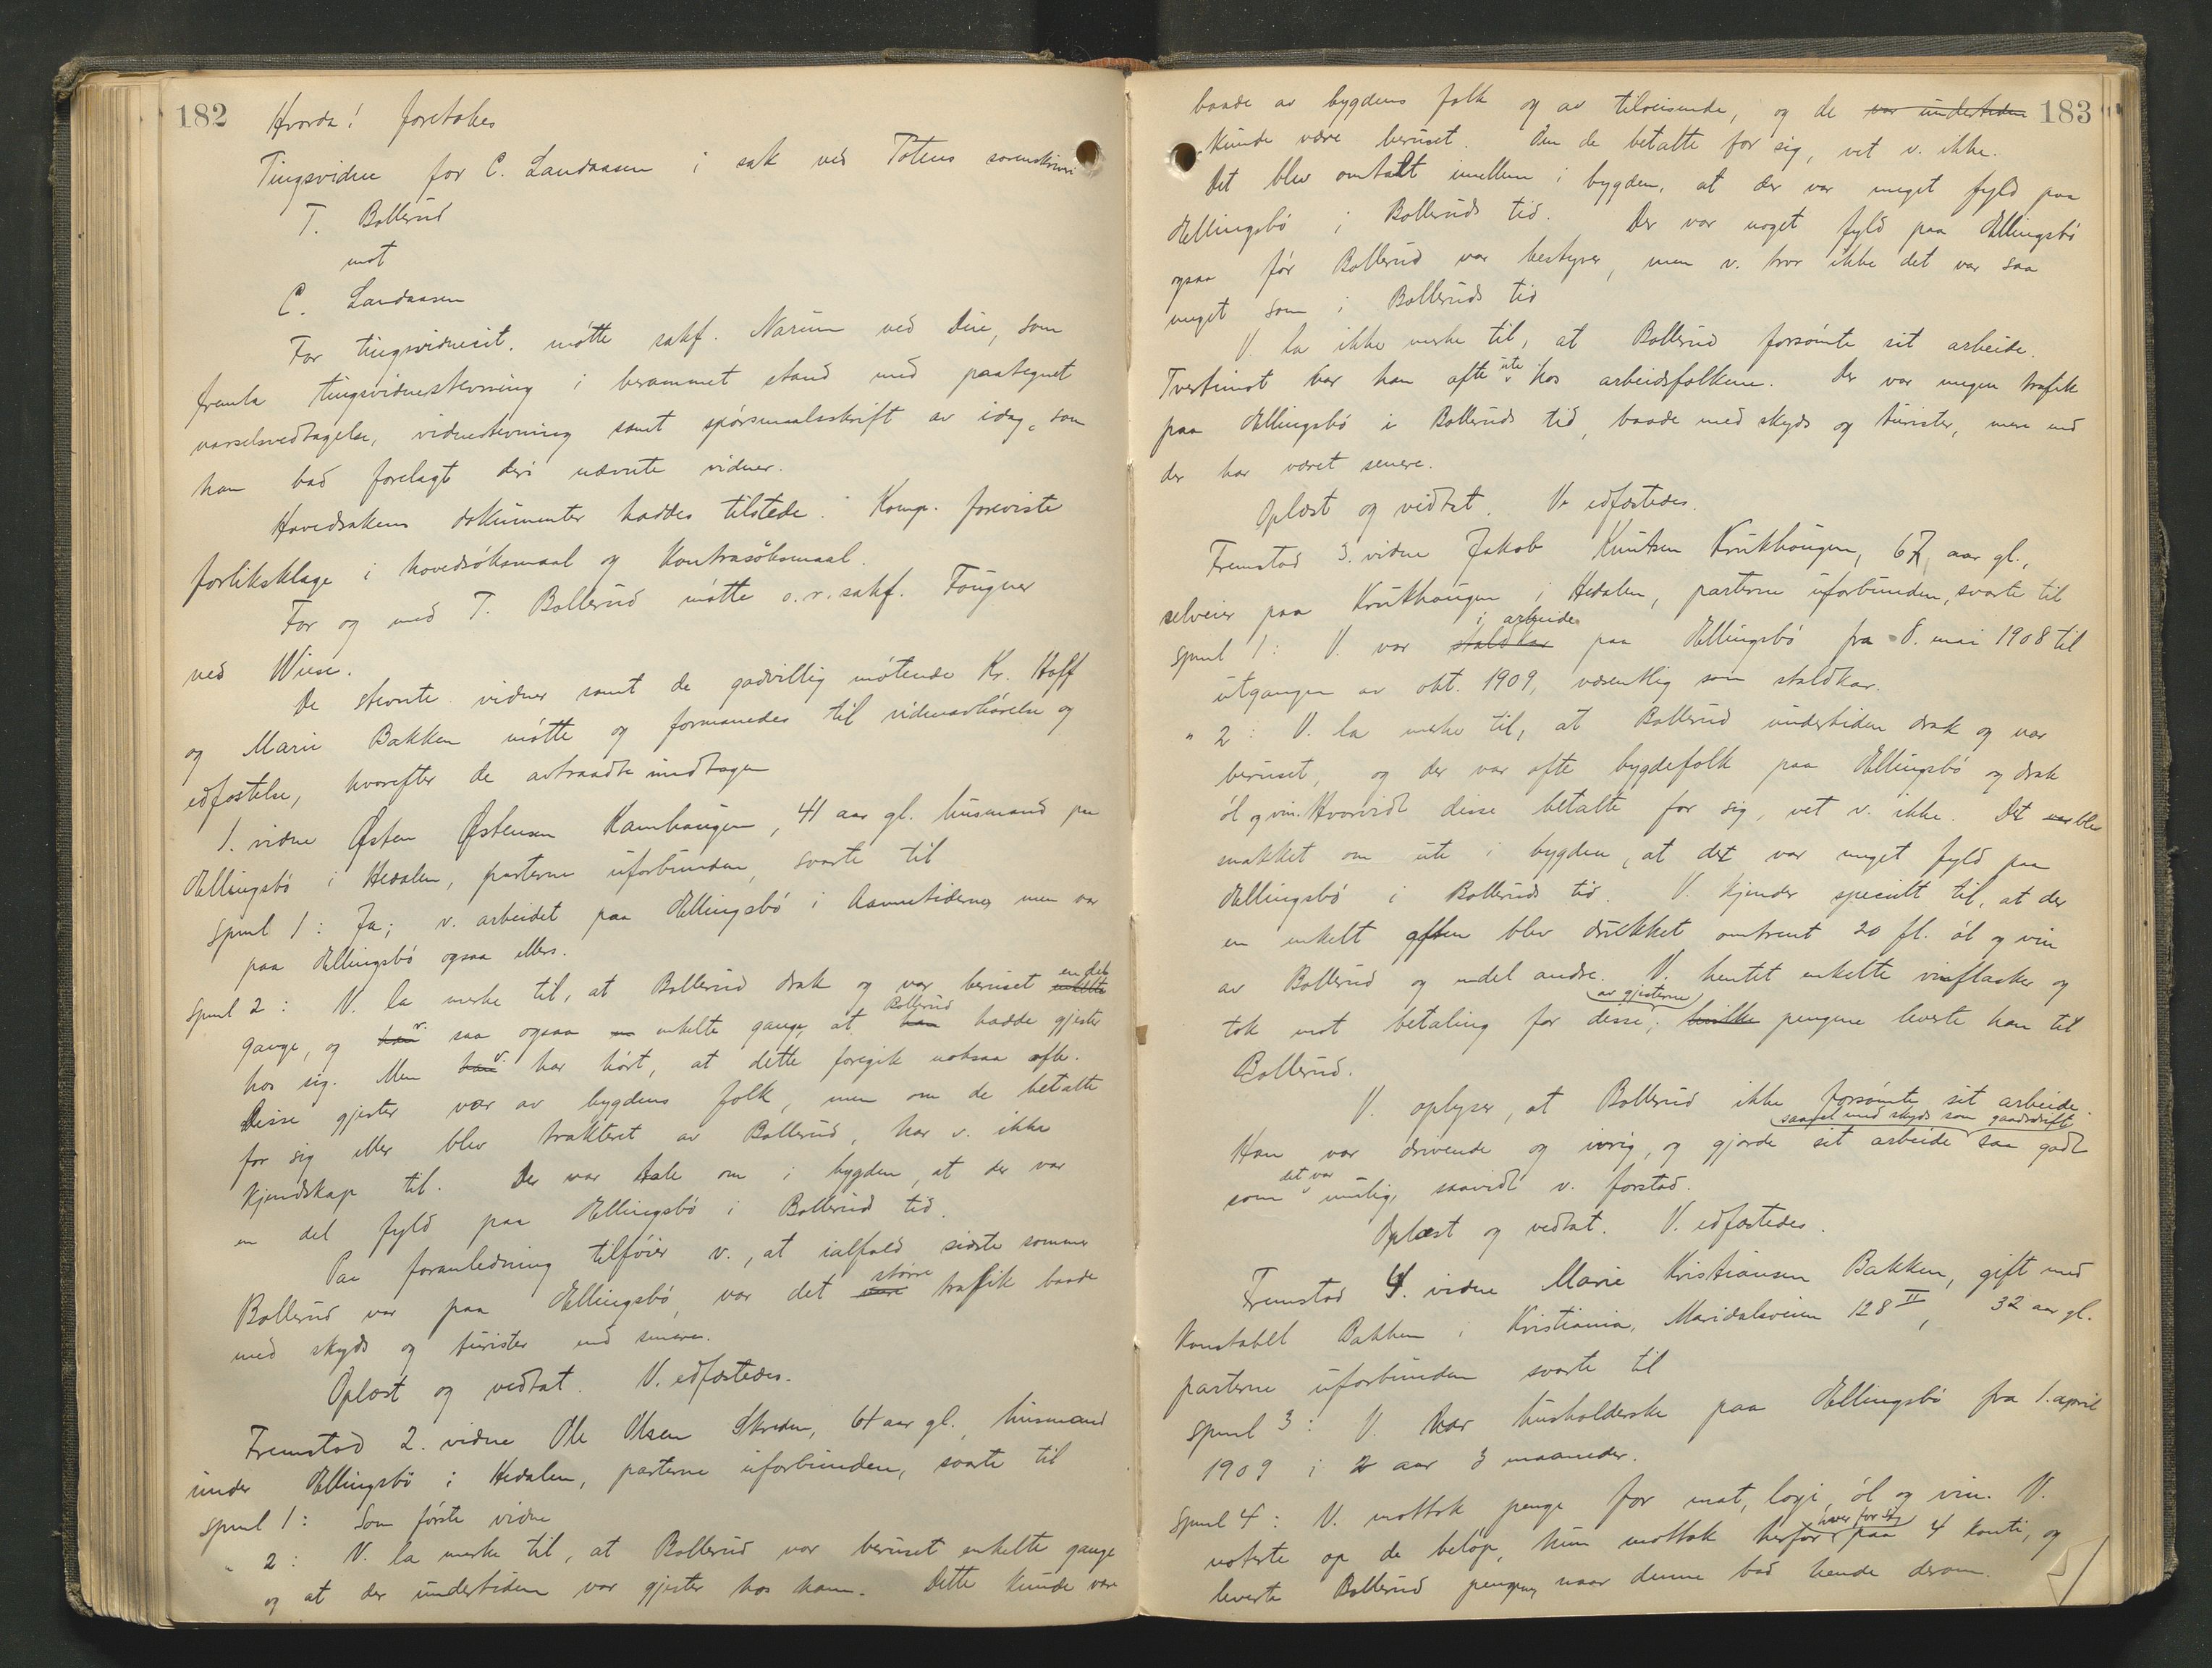 182
Hvorda! foretokes
Tingsvidne for C. Landaasen i sak ved Totens sorenskriveri
T. Bollerud
mot
C. Landaasen
For tingsvidnecit. møtte sakf. Narum ved Due, som
fremla tingsvidnestevning i berammet stand med paategnet
varselsvedtagelse, vidnestevning samt spørsmaalsskrift av idag, som
han bad forelagt deri nævnte vidner.
Hovedsakens dokumenter haddes tilstede. Komp. foreviste
forliksklage i hovedsøksmaal og kontrasøksmaal.
For og med T. Bollerud møtte o.r.sakf. Fougner
ved Wiese.
De stevnte vidner samt de godvillig møtende Kr. Hoff
og Marie Bakken møtte og formanedes til vidneavhørelse og
edfæstelse, hvorefter de avtraadte indtagen
1. vidne Østen Østensen Kamhaugen, 41 aar gl. husmand paa
Ellingsbø i Hedalen, parterne uforbunden, svarte til
spml 1: Ja; v. arbeidet paa Ellingsbø i aannetiderne men var
paa Ellingsbø ogsaa ellers.
spml 2: V. la merke til, at Bollerud drak og var beruset enkelte en del
gange, og han v. saa ogsaa enkelte gange, at han Bollerud hadde gjester
hos sig. Men han v. har hørt, at dette foregik noksaa ofte.
Disse gjester var av bygdens folk, men om de betalte
for sig eller blev trakteret av Bollerud, har v. ikke
kjendskap til. Der var tale om i bygden, at der var
en del fyld paa Ellingsbø i Bollerud tid.
Paa foranledning tilføier v., at ialfald sidste sommer
Bollerud var paa Ellingsbø, var det større trafik baade
med skyds og turister end senere.
Oplæst og vedtat. V. edfæstedes.
Fremstod 2. vidne Ole Olsen Skreden, 64 aar gl., husmand
under Ellingsbø i Hedalen, parterne uforbunden, svarte til
spml 1: Som første vidne
" 2: V. la merke til, at Bollerud var beruset enkelte gange
og at der undertiden var gjester hos ham. Dette kunde være
183
baade av bygdens folk og av tilreisende, og de var undertiden
kunde være beruset. Om de betalte for sig, vet v. ikke.
Det blev omtalt imellem i bygden, at der var meget fyld paa
Ellingsbø i Bolleruds tid. Der var noget fyld paa Ellingsbø
ogsaa før Bollerud var bestyrer, men v. tror ikke det var saa
meget som i Bolleruds tid
V. la ikke merke til, at Bollerud forsømte sit arbeide.
Tvertimot var han ofte ute hos arbeidsfolkene. Der var megen trafik
paa Ellingsbø i Bolleruds tid, baade med skyds og turister, mere end
der har været senere.
Oplæst og vedtat. V. edfæstedes.
Fremstod 3. vidne Jakob Knutsen Krukhaugen, 67 aar gl.,
selveier paa Krukhaugen i Hedalen, parterne uforbunden, svarte til
spml 1: V. var staldkar i arbeide paa Ellingsbø fra 8. mai 1908 til
utgangen av okt. 1909, væsentlig som staldkar.
" 2: V. la merke til, at Bollerud undertiden drak og var
beruset, og der var ofte bygdefolk paa Ellingsbø og drak
øl og vin. Hvorvidt disse betalte for sig, vet v. ikke. Det var blev
snakket om ute i bygden, at det var meget fyld paa
Ellingsbø i Bolleruds tid. V. kjender specielt til, at der
en enkelt aften blev drukket omtrent 20 fl. øl og vin
av Bollerud og endel andre. V. hentet enkelte vinflasker og
tok mot betaling for disse av gjesterne; hvilke pengene leverte han til
Bollerud.
V. oplyser, at Bollerud ikke forsømte sit arbeide.
Han var drivende og ivrig, og gjorde sit arbeide saavel med skyds som gaardsdrift saa godt
som det var mulig, saavidt v. forstod.
Oplæst og vedtat. V. edfæstedes.
Fremstod 4. vidne Marie Kristiansen Bakken, gift med
Konstabel Bakken i Kristiania, Maridalsveien 128 II, 32 aar gl.
parterne uforbunden svarte til
spml 3: V. var husholderske paa Ellingsbø fra 1. april
1909 i 2 aar 3 maaneder.
spml 4: V. mottok penge for mat, logi, øl og vin. V.
noterte op de beløp, hun mottok herfor hver for sig paa 4 konti, og
leverte Bollerud pengene, naar denne bad hende derom.